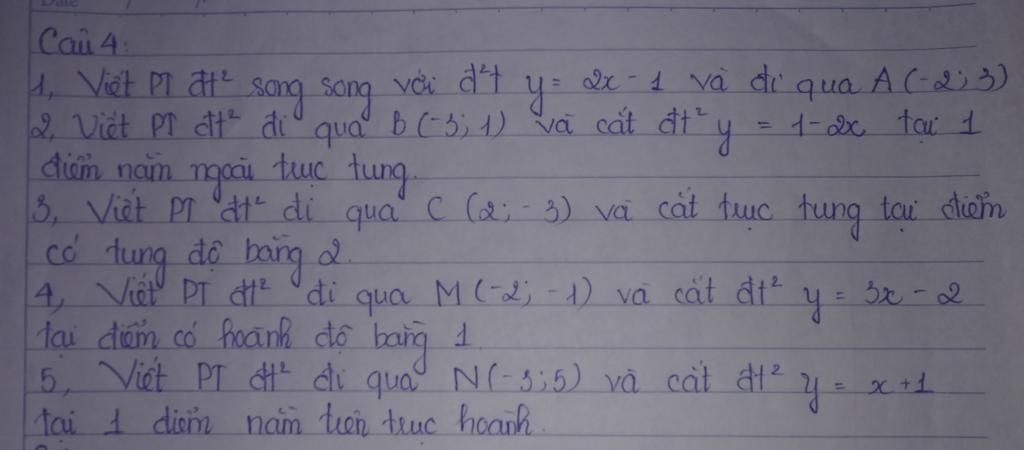 Date
Câu 4:
1, Viết PT đt² song song với đ²t y = 2x - 1 và đi qua A (-2; 3)
2, Viết PT đt² đi qua B (-3; 1) và cắt đt² y = 1-2x tại 1
điểm nằm ngoài trục tung.
3, Viết PT đt² đi qua C (2; -3) và cắt trục tung tại điểm
có tung độ bằng 2.
4, Viết PT đt² đi qua M (-2; -1) và cắt đt² y = 3x - 2
tại điểm có hoành độ bằng 1.
5, Viết PT đt² đi qua N (-3; 5) và cắt đt² y = x + 1
tại 1 điểm nằm trên trục hoành.